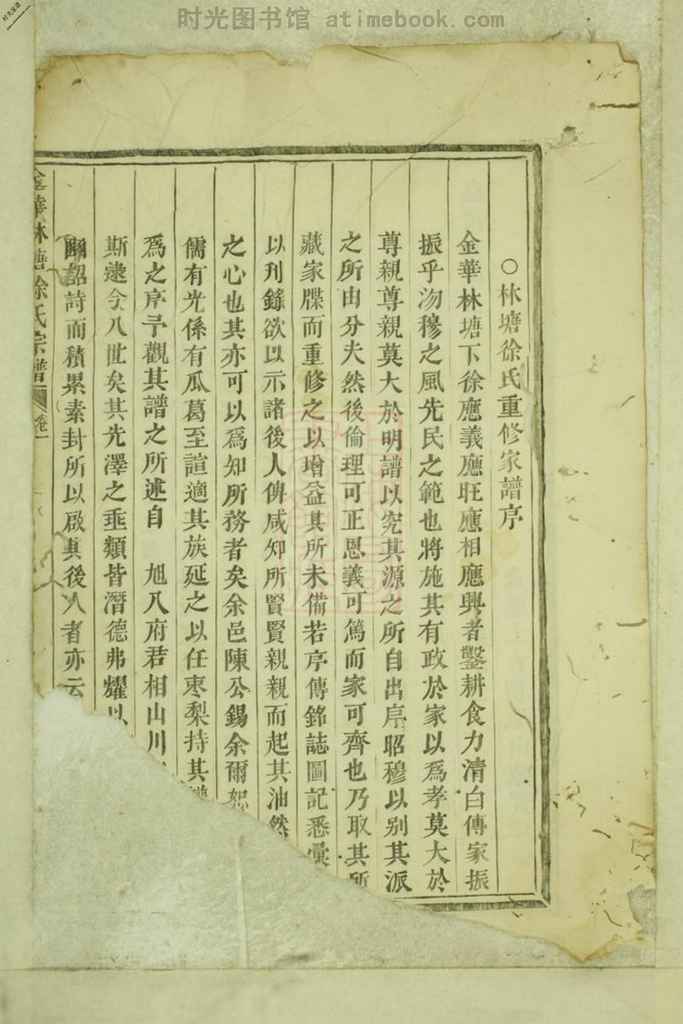 时光图书馆 atimebook.com
○林塘徐氏重修家譜序
金華林塘下徐應義應旺應相應興者鑿耕食力清白傳家振
振乎沕穆之風先民之範也將施其有政於家以爲孝莫大於
尊親尊親莫大於明譜以究其源之所自出序昭穆以别其派
之所由分夫然後倫理可正恩義可篤而家可齊也乃取其所
藏家牒而重修之以增益其所未備若序傳銘誌圖記悉彙
以刋錄欲以示諸後人俾咸知所賢賢親親而起其油然
之心也其亦可以爲知所務者矣余邑陳公錫余爾恕
儒有光係有瓜葛至誼適其族延之以任枣梨持其譜
爲之序予觀其譜之所述自 旭八府君相山川
斯逮今八世矣其先澤之垂類皆潛德弗耀以
詔詩而積累素封所以啟其後人者亦云
金華林塘徐氏宗譜 卷一